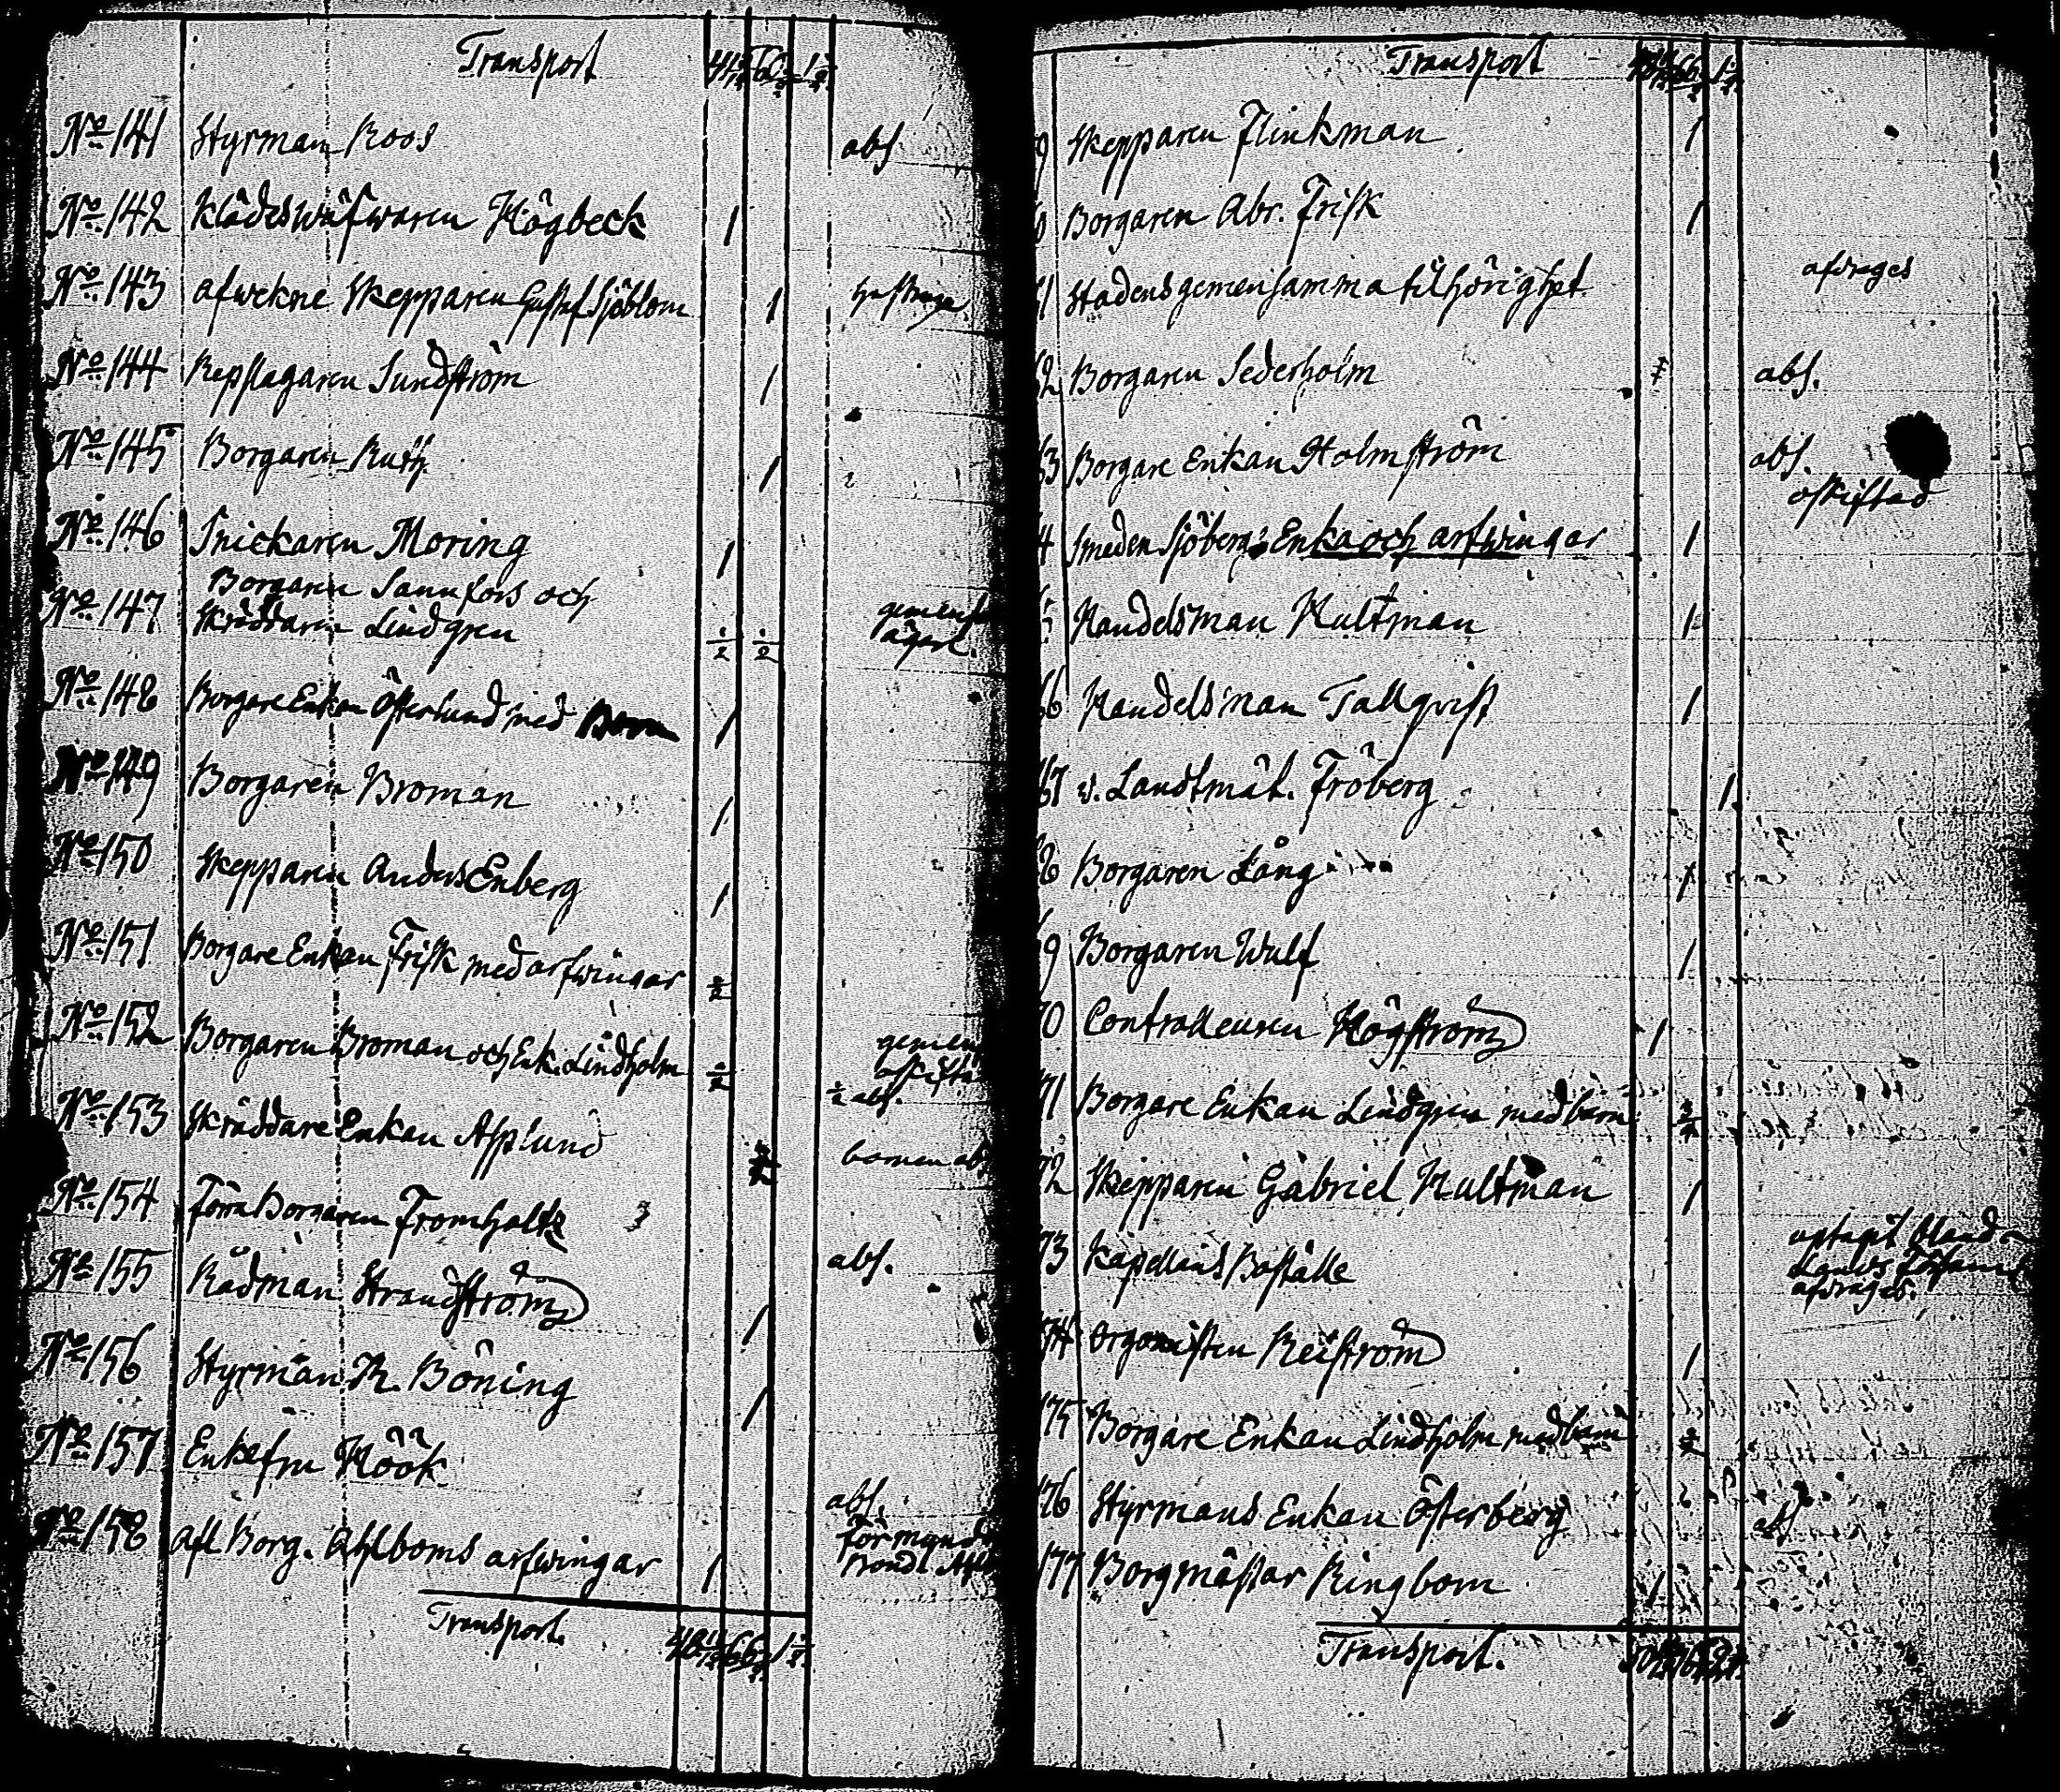 Transport
No 141 Styrman Roos abs.
No 142 Klädeswäfwaren Högbeck 1
No 143 afwekne Skepparen Gustaf Sjöblom 1
No 144 Repslagaren Sundström 1
No 145 Borgaren 1
No 146 Snickaren Moring 1
Borgaren Sannfors och
No 147 Skräddaren Lindgren 1/2 1/2
No 148 Borgare Enkan Österlund med Barn 1
No 149 Borgaren Broman 1
No 150 Skepparen Anders Enberg 1
No 151 Borgare Enkan Frisk med arfwingar
No 152 Borgaren Broman och Enk. Lindholm
1/2 abs.
No 153 Skräddare Enkan Asplund
No 154 Förra Borgaren Fromholtz
abs.
No 155 Rådman Strandström 1
No 156 Styrman R. Böning 1
No 157 Enkefru Höök
abs.
No 158 Afl Borg. Ahlboms arfwingar 1
Transport.
Transport
9 Skepparen Flinkman 1
Borgaren Abr. Frisk 1
1 Stadens gemensamma tillhörighet afdrages
2 Borgaren Sederholm abs.
3 Borgare Enkan Holmström abs.
oskiftad
4 Smeden Sjöbergs Enka och arfwingar 1
Handelsman Hultman 1
6 Handelsman Tallqvist 1
67 v. Landtmät. Fröberg 1
8 Borgaren Lång 1
9 Borgaren Wulf 1
70 Contralleuren Högström 1
71 Borgare Enkan Lindgren med barn
72 Skepparen Gabriel Hultman 1
73 Kapellans Boställe
afdrages.
74 Organisten Reiström 1
175 Borgare Enkan Lindholm med barn
176 Styrmans Enkan Österberg abs
177 Borgmästar Ringbom 1
Transport.